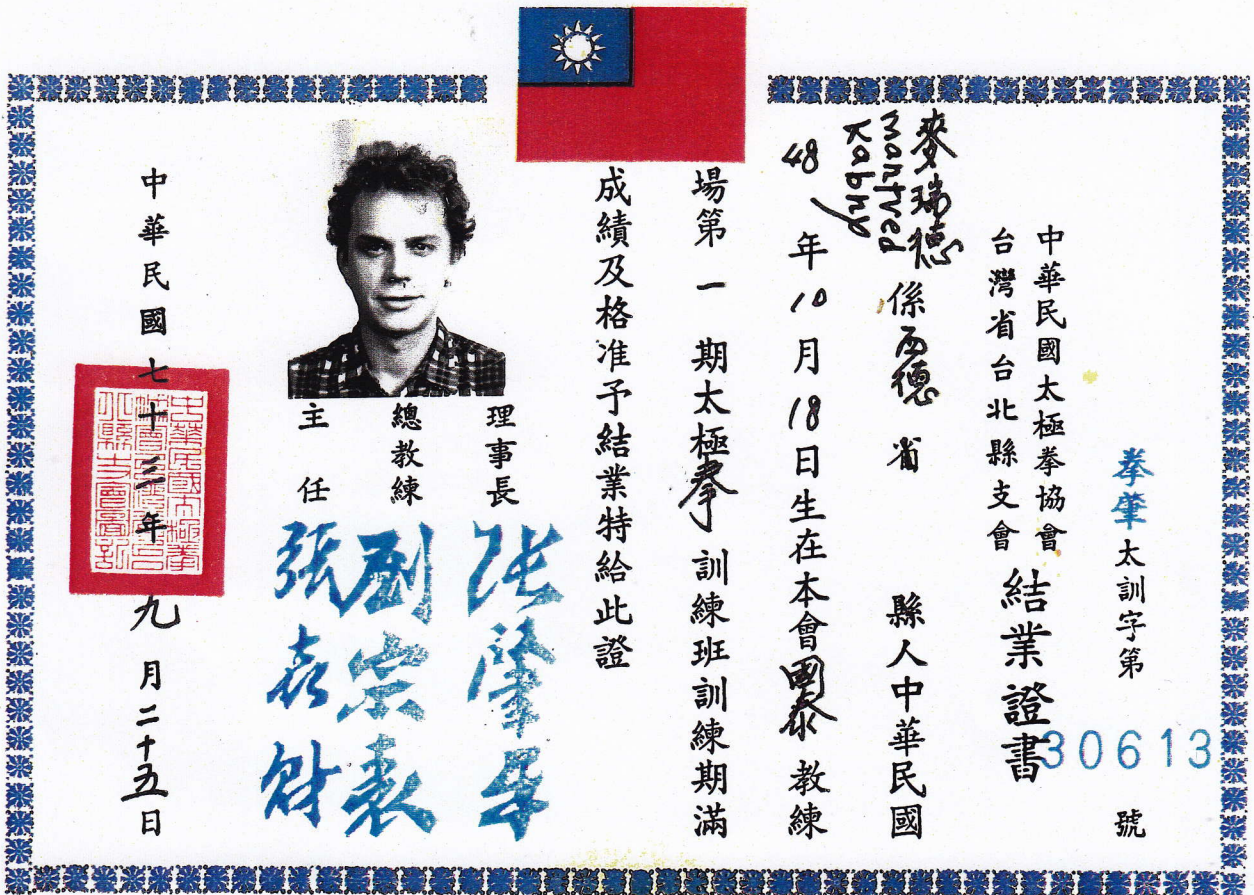 拳肇太訓字第30613號
中華民國太極拳協會
台灣省台北縣支會
結業證書
麥瑞德
Manfred
Kabny
係西德省 縣人中華民國
48年10月18日生在本會國泰教練
場第一期太極拳訓練班訓練期滿
成績及格准予結業特給此證
理事長
張肇平
總教練
劉宗
主任
張
財
中華民國七十三年九月二十五日